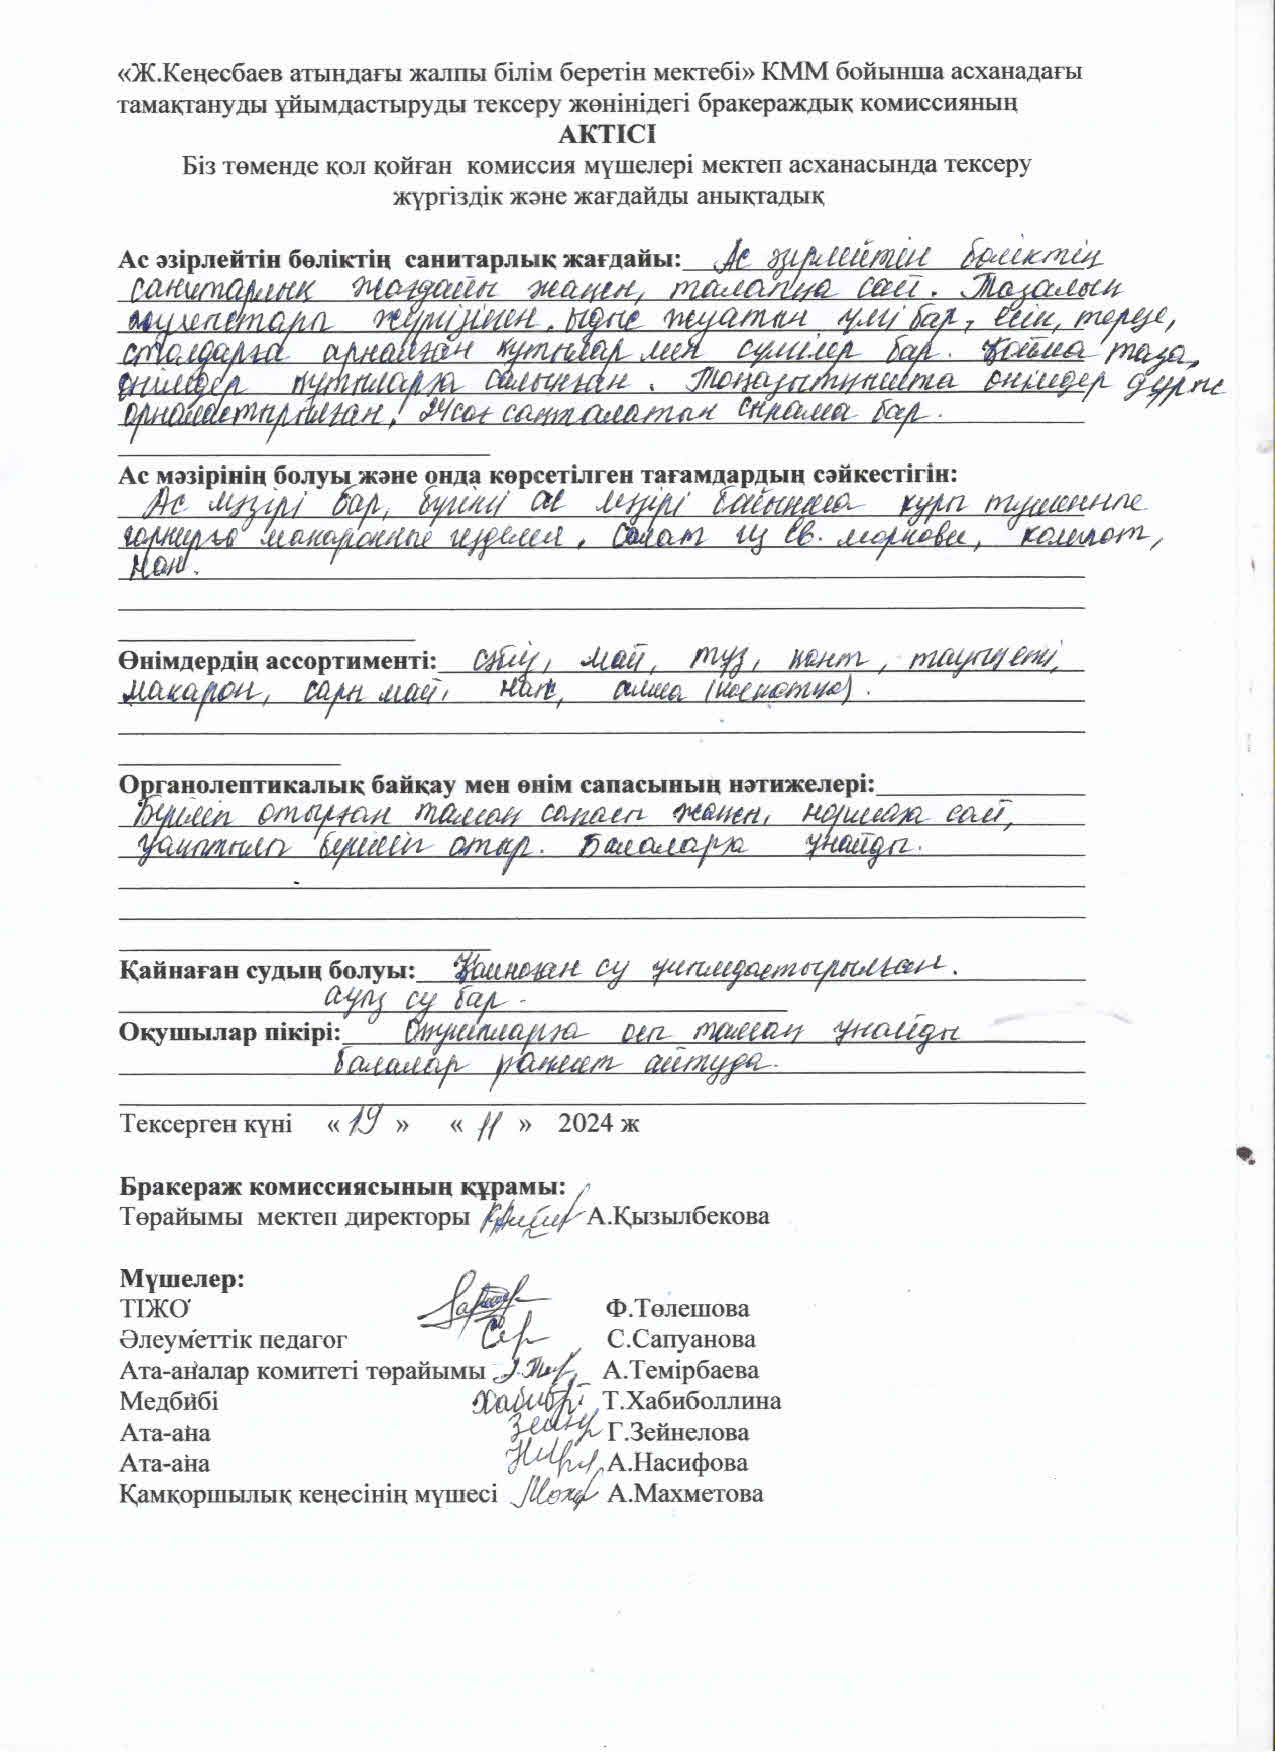 «Ж.Кеңесбаев атындағы жалпы білім беретін мектебі» КММ бойынша асханадағы
тамақтануды ұйымдастыруды тексеру жөнінідегі бракераждық комиссияның
АКТІСІ
Біз төменде қол қойған комиссия мүшелері мектеп асханасында тексеру
жүргіздік және жағдайды анықтадық
Ас әзірлейтін бөліктің санитарлық жағдайы: Ас әзірлейтін бөліктің
санитарлық жағдайы жақсы, талапқа сай. Тазалық
жүргізілген. Ыдыс жуатын үлгі бар, есік, терезе,
столдарға арналған құтылар мен сүлгілер бар. Қойма таза,
өнімдер құтыларға салынған. Тоңазытқышта өнімдер дұрыс
орналастырылған. 24 сағ сақталатын сынама бар.
Ас мәзірінің болуы және онда көрсетілген тағамдардың сәйкестігін:
Ас мәзірі бар, бүгінгі ас мәзірі бойынша
гарнирға макаронные изделия, салат из св. моркови, компот,
нан.
Өнімдердің ассортименті: сәбіз, май, тұз, қант, тауық еті,
макарон, сары май, нан, алма
Органолептикалық байқау мен өнім сапасының нәтижелері:
Беріліп отырған тамақ сапасы жақсы, нормаға сай,
уақытылы беріліп отыр. Балаларға ұнайды.
Қайнаған судың болуы: Қайнаған су ұйымдастырылған.
ауыз су бар.
Оқушылар пікірі: Оқушыларға осы тамақ ұнайды
балалар рахмет айтуда.
Тексерген күні « 19 » « 11 » 2024 ж
Бракераж комиссиясының құрамы:
Төрайымы мектеп директоры А.Қызылбекова
Мүшелер:
ТІЖО Ф.Төлешова
Әлеуметтік педагог С.Сапуанова
Ата-аналар комитеті төрайымы А.Темірбаева
Медбибі Т.Хабиболлина
Ата-ана Г.Зейнелова
Ата-ана А.Насифова
Қамқоршылық кеңесінің мүшесі А.Махметова